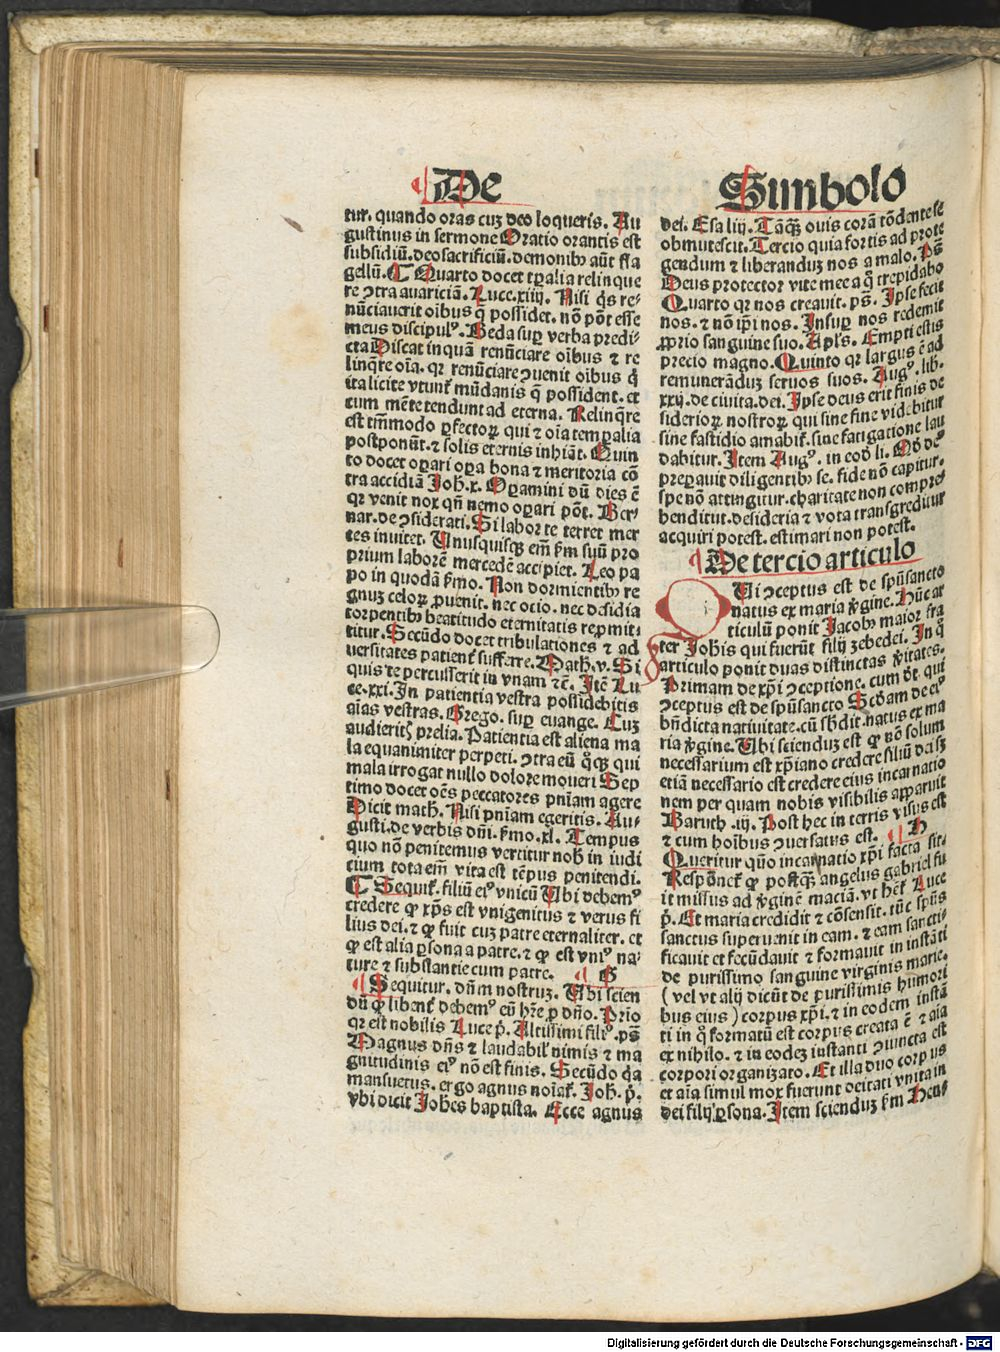 De Simbolo
tur. quando oras cuz deo loqueris. Au
gustinus in sermone Oratio orantis est
subsidiū. deo sacrificiū. demonibꝰ aūt fla
gellū. ¶ Quarto docet tꝑalia relinque
re ꝯtra avariciā. Luce. xiiij. Nisi q̄s re-
nūciaverit oibus q̄ possidet. nō pōt esse
meus discipulꝰ. Beda suꝑ verba predi-
cta Discat inquā renūciare oībus ⁊ re
linq̄re oīa. qꝛ renūciare ꝯuenit oibus q̄
ita licite vtunt̉ mūdanis q̄ possident. et
tum mēte tendunt ad eterna. Relinq̄re
est tm̄modo ꝑfectoꝝ qui ⁊ oīa temꝑalia
postponūt. ⁊ solis eternis inhiāt. Quin
to docet oꝑari oꝑa bona ⁊ meritoria cō
tra accidiā Joh. x. Oꝑamini dū dies ē
qꝛ venit nox qn̄ nemo oꝑari pōt. Ber
nar. de ꝯsiderati. Si labor te terret mer
ces inuitet. Unusquisqꝫ em̄ ẜm suū pro
prium laborē mercedē accipiet. Leo pa
po in quodā ẜmo. Non dormientibꝰ re
gnuꝫ celoꝝ ꝓuenit. nec ocio. nec desidia
torpentibꝰ beatitudo eternitatis reꝓmit-
titur. Secūdo docet tribulationes ⁊ ad
uersitates patient̉ sufferre. Math. v. Si
quis te percusserit in vnam ⁊c̄. Itē Lu
ce. xxi. In patientia vestra possidebitis
aīas vestras. Grego. suꝑ euange. Cuꝫ
audieritꝭ prelia. Patientia est aliena ma
la equanimiter perpeti. ꝯtra eū q̊qꝫ qui
mala irrogat nullo dolore moueri Sep
timo docet oēs peccatores pn̄iam agere
Dicit math. Nisi pn̄iam egeritis. Au-
gusti. de verbis dn̄i. ẜmo. xl. Tempus
quo nō penitemus vertitur nob̄ in iudi
cium tota em̄ vita est tēpus penitendi.
¶ Sequit̉. filiū eiꝰ vnicū Ubi debemꝰ
credere ꝙ xp̄s est vnigenitus ⁊ verus fi
lius dei. ⁊ ꝙ fuit cuꝫ patre eternaliter. et
ꝙ est alia ꝑsona a patre. ⁊ ꝙ est vniꝰ na-
ture ⁊ substantie cum patre. G
Sequitur. dn̄m nostruꝫ. Ubi scien
dū ꝙ libent̉ debemꝰ eū hr̄e ꝓ dn̄o. Prio
qꝛ est nobilis Luce p̄. Altissimi filiꝰ. ps̄
Magnus dn̄s ⁊ laudabil̉ nimis ⁊ ma
gnitudinis eiꝰ nō est finis. Secūdo q̄a
mansuetus. ergo agnus noīat̉. Joh. p̄.
vbi dicit Johēs baptista. Ecce agnus
dei. Esa liij. Tāq̄ꝫ ouis corā tōdente se
obmutescit. Tercio quia fortis ad prote
gendum ⁊ liberanduꝫ nos a malo. Ps̄
Deus protector vite mee a q̊ trepidabo
Quarto qꝛ nos creauit. ps̄. Ipse fecit
nos. ⁊ nō ip̄i nos. Insuꝑ nos redemit
ꝓprio sanguine suo. Apl̄s. Empti estis
precio magno. Quinto qꝛ largus ē ad
remunerāduꝫ seruos suos. Augꝰ. lib.
xxij. de ciuita. dei. Ipse deus erit finis de
sideriorꝝ nostroꝝ qui sine fine videbitur
sine fastidio amabit̉. sine fatigatione lau
dabitur. Item Augꝰ. in eod̄ li. Qd̄ deꝰ
preꝑauit diligentibꝰ se. fide nō capitur.
spe nō attingitur. charitate non compre
henditur. desideria ⁊ vota transgreditur
acquiri potest. estimari non potest.
De tercio articulo
Ui ꝯceptus est de spū sancto
natus ex maria ꝟgine. Hūc ar
ticulū ponit Jacobꝰ maior fra
ter Johis qui fuerūt filij zebedei. In q̊
articulo ponit duas distinctas ꝟitates.
Primam de xp̄i ꝯceptione. cum dr̄. qui
ꝯceptus est de spū sancto Scd̄am de eiꝰ
bn̄dicta natiuitate. cū sb̄dit. natus ex ma
ria ꝟgine. Ubi scienduꝫ est ꝙ nō solum
necessarium est xp̄iano credere filiū dei sꝫ
etiā necessario est credere eius incarnatio
nem per quam nobis visibilis apparuit
Baruch. iij. Post hec in terris visus est
⁊ cum hoībus ꝯuersatus est. H
Queritur quō incarnatio xp̄i facta sit.
Respōnet̉ ꝙ postq̄ꝫ angelus gabriel fu
it missus ad ꝟginē mariā. vt hēt̉ Luce
p̄. Et maria credidit ⁊ cōsensit. tūc sp̄us
sanctus superuenit in eam. ⁊ eam sancti-
ficauit et fecūdauit ⁊ formauit in instāti
de purissimo sanguine virginis marie.
(vel vt alij dicūt de purissimis humori
bus eius) corpus xp̄i. ⁊ in eodem instā
ti in q̊ formatū est corpus creata ē ⁊ aīa
ex nihilo. ⁊ in eodeꝫ instanti ꝯiuncta est
corpori organizato. Et illa duo corpus
et aīa simul mox fuerunt deitati vnita in
dei filij ꝑsona. Item scienduꝫ ẜm Hen-
Digitalisierung gefördert durch die Deutsche Forschungsgemeinschaft - DFG